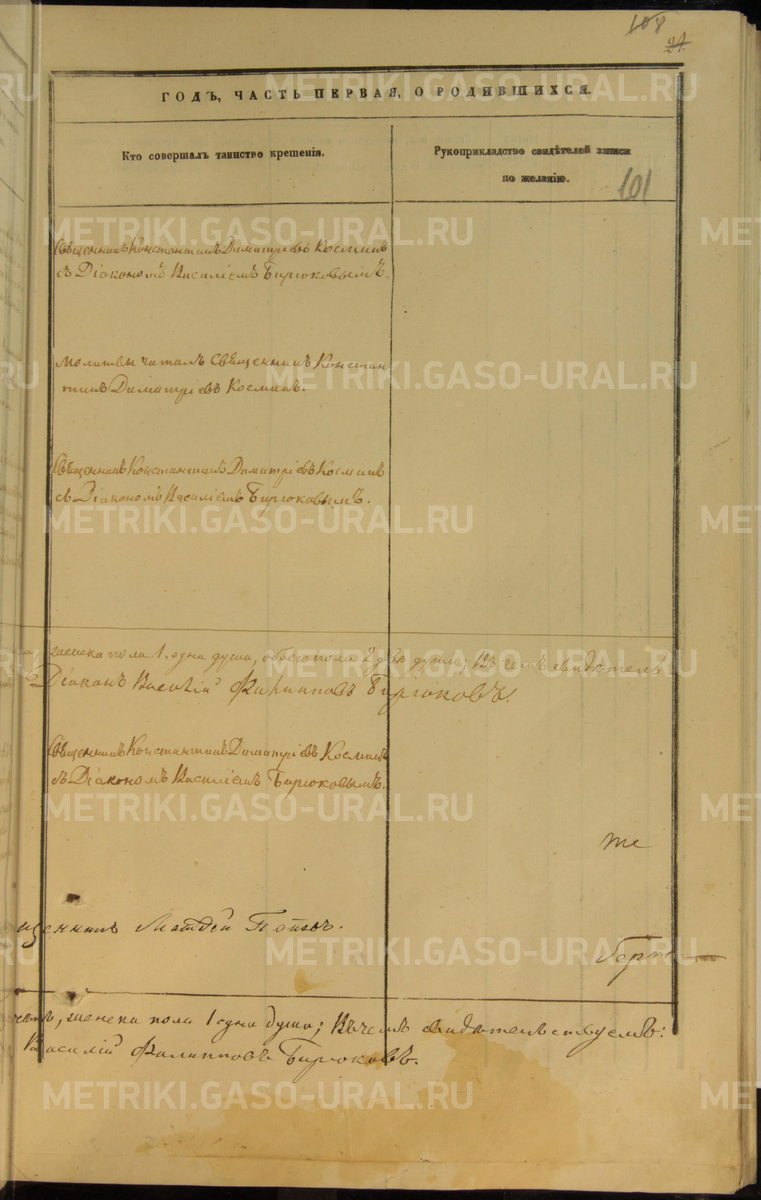 108
21.
ГОДЪ, ЧАСТЬ ПЕРВАЯ, О РОДИВШИХСЯ.
Кто совершалъ таинство крещенія.
Рукоприкладство свидѣтелей записи
по желанію.
101
METRIKI.GASO-URAL.RU
Священникъ Константинъ Димитріевъ Косминъ
съ Діакономъ Василіемъ Бирюковымъ.
молитвы читалъ Священникъ Констан
тинъ Димитріевъ Косминъ.
METRIKI.GASO-URAL.RU
Священникъ Константинъ Димитріевъ Косминъ
съ Діакономъ Василіемъ Бирюковымъ.
METRIKI.GASO-URAL.RU
женска пола 1. одна душа, обоего пола 2 двѣ души; Въ семъ свидѣтель
METRIKI.GASO-URAL.RU
Діаконъ Василій Филипповъ Бирюковъ.
Священникъ Константинъ Димитріевъ Косминъ
съ Діакономъ Василіемъ Бирюковымъ.
METRIKI.GASO-URAL.RU
те
щенникъ Матѳей Поповъ.
METRIKI.GASO-URAL.RU
женска пола 1 одна душа; Въ чемъ свидѣтельствуемъ:
Василій Филипповъ Бирюковъ.
METRIKI.GASO-URAL.RU